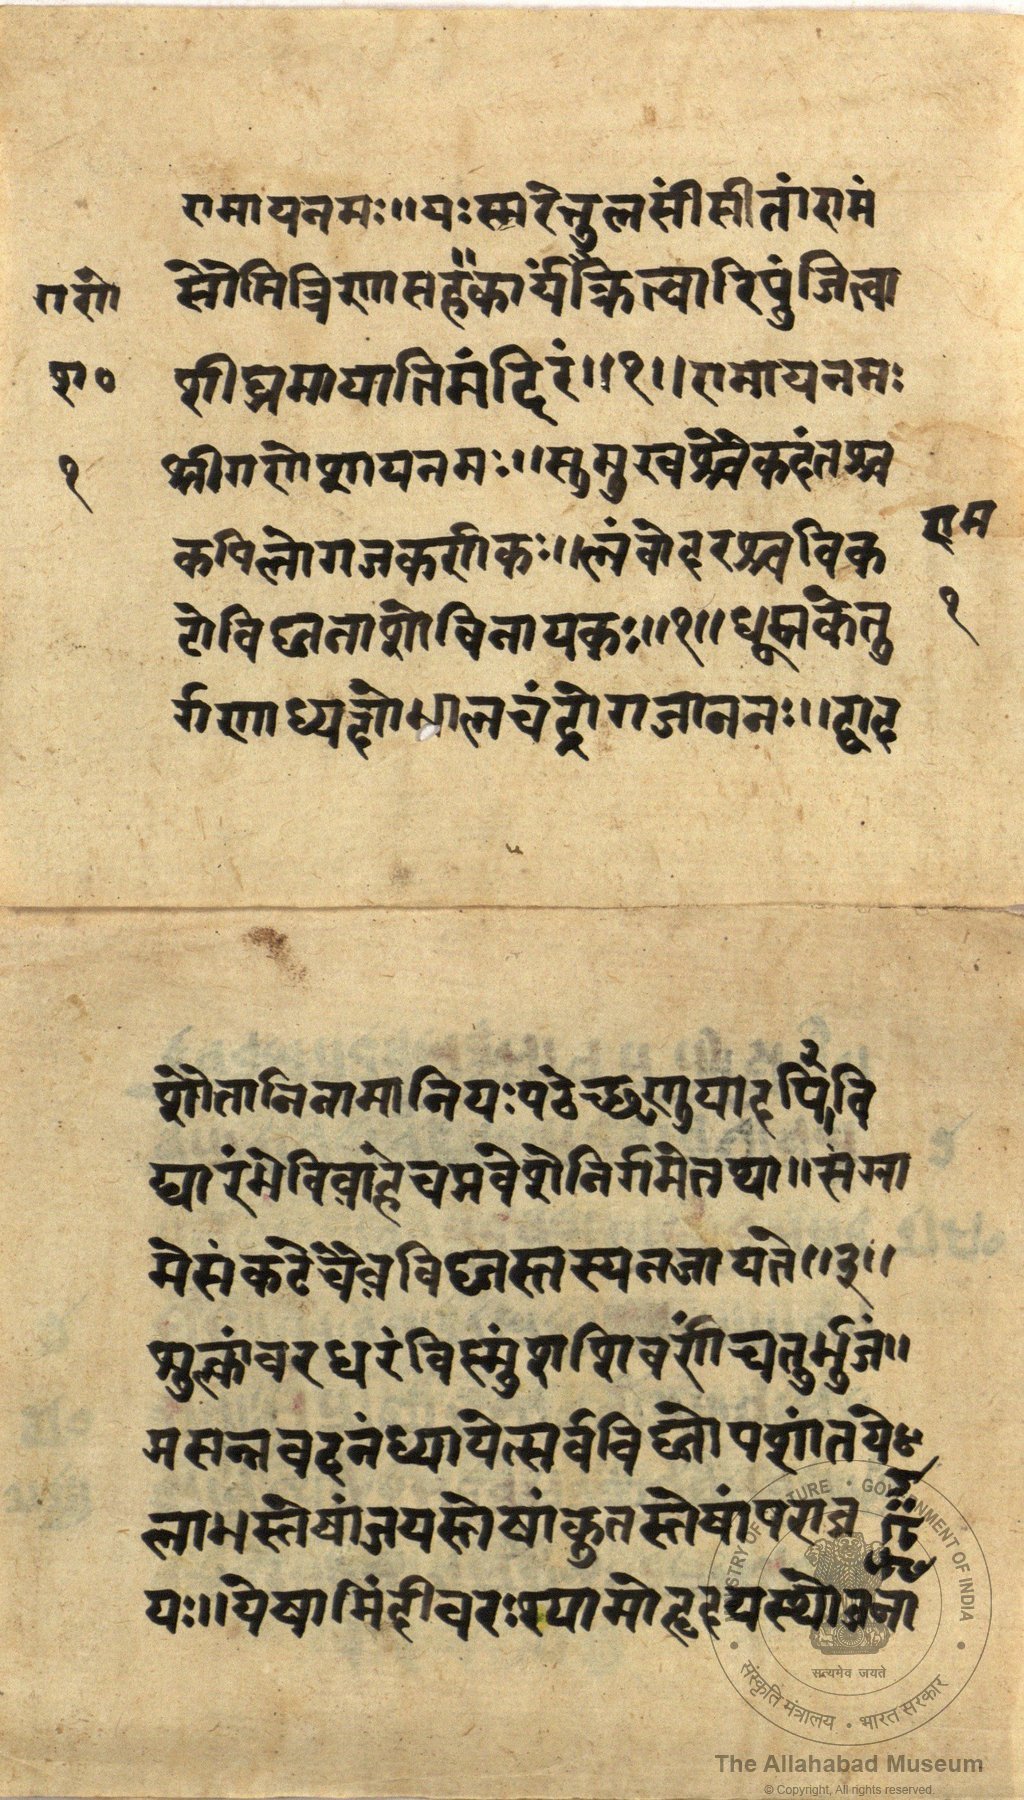 रामायनमः॥यःस्मरेत्तुलसींसीतांरामं
सौमित्रिणासहकार्यंक्रित्वारिपुंजित्वा
गणे
शीघ्रमायातिमंदिरं॥१॥रामायनमः
श०
श्रीगणेशायनमः॥सुमुखश्चैकदंतश्च
१
कपिलोगजकर्णकः॥लंबोदरश्चविक
राम
टोविघ्ननाशोविनायकः॥१॥धूम्रकेतु
१
र्गणाध्यक्षोभालचंद्रोगजाननः॥द्वाद
शैतानिनामानियःपठेच्छृणुयादपि२वि
द्यारंभेविवाहेचप्रवेशेनिर्गमेतथा॥संग्रा
मेसंकटेचैवविघ्नस्तस्यनजायते॥३॥
शुक्लांबरधरंविष्णुंशशिवर्णंचतुर्भुजं॥
प्रसन्नवदनंध्यायेत्सर्वविघ्नोपशांतये४
लाभस्तेषांजयस्तेषांकुतस्तेषांपराज
यः॥येषामिंदीवरःश्यामोहृदयस्थोजना
सत्यमेव जयते
MINISTRY OF CULTURE · GOVERNMENT OF INDIA
संस्कृति मंत्रालय · भारत सरकार
The Allahabad Museum
© Copyright, All rights reserved.